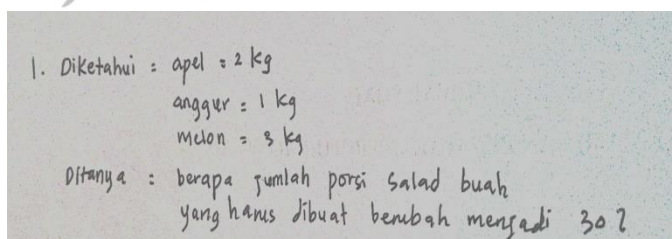 1. Diketahui : apel : 2 kg
anggur : 1 kg
melon = 3 kg
Ditanya : berapa jumlah porsi salad buah
yang harus dibuat berubah menjadi 30?